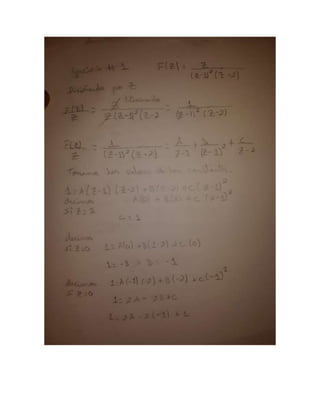 Ejercicio No 1 F(Z) = Z / (Z-1)² (Z-2)
Dividimos por Z
F(Z)/Z = Z / Z(Z-1)²(Z-2 = 1 / (Z-1)² (Z-2)
F(Z)/Z = 1 / (Z-1)²(Z-2) = A / Z-1 + B / (Z-1)² + C / Z-2
Tomamos los valores de las constantes
1 = A(Z-1) (Z-2) + B(Z-2) + C(Z-1)²
decimos = A(0) + B(0) + C (2-1)²
si Z=2
C=1
decimos
si Z=0 1 = A(0) + B(1-2) + C (0)
1 = -B → B = -1
decimos 1=A(-1)(-2) + B(-2) + C(-1)²
si Z=0
1 = 2A - 2B + C
1 = 2A - 2(-1) + 1